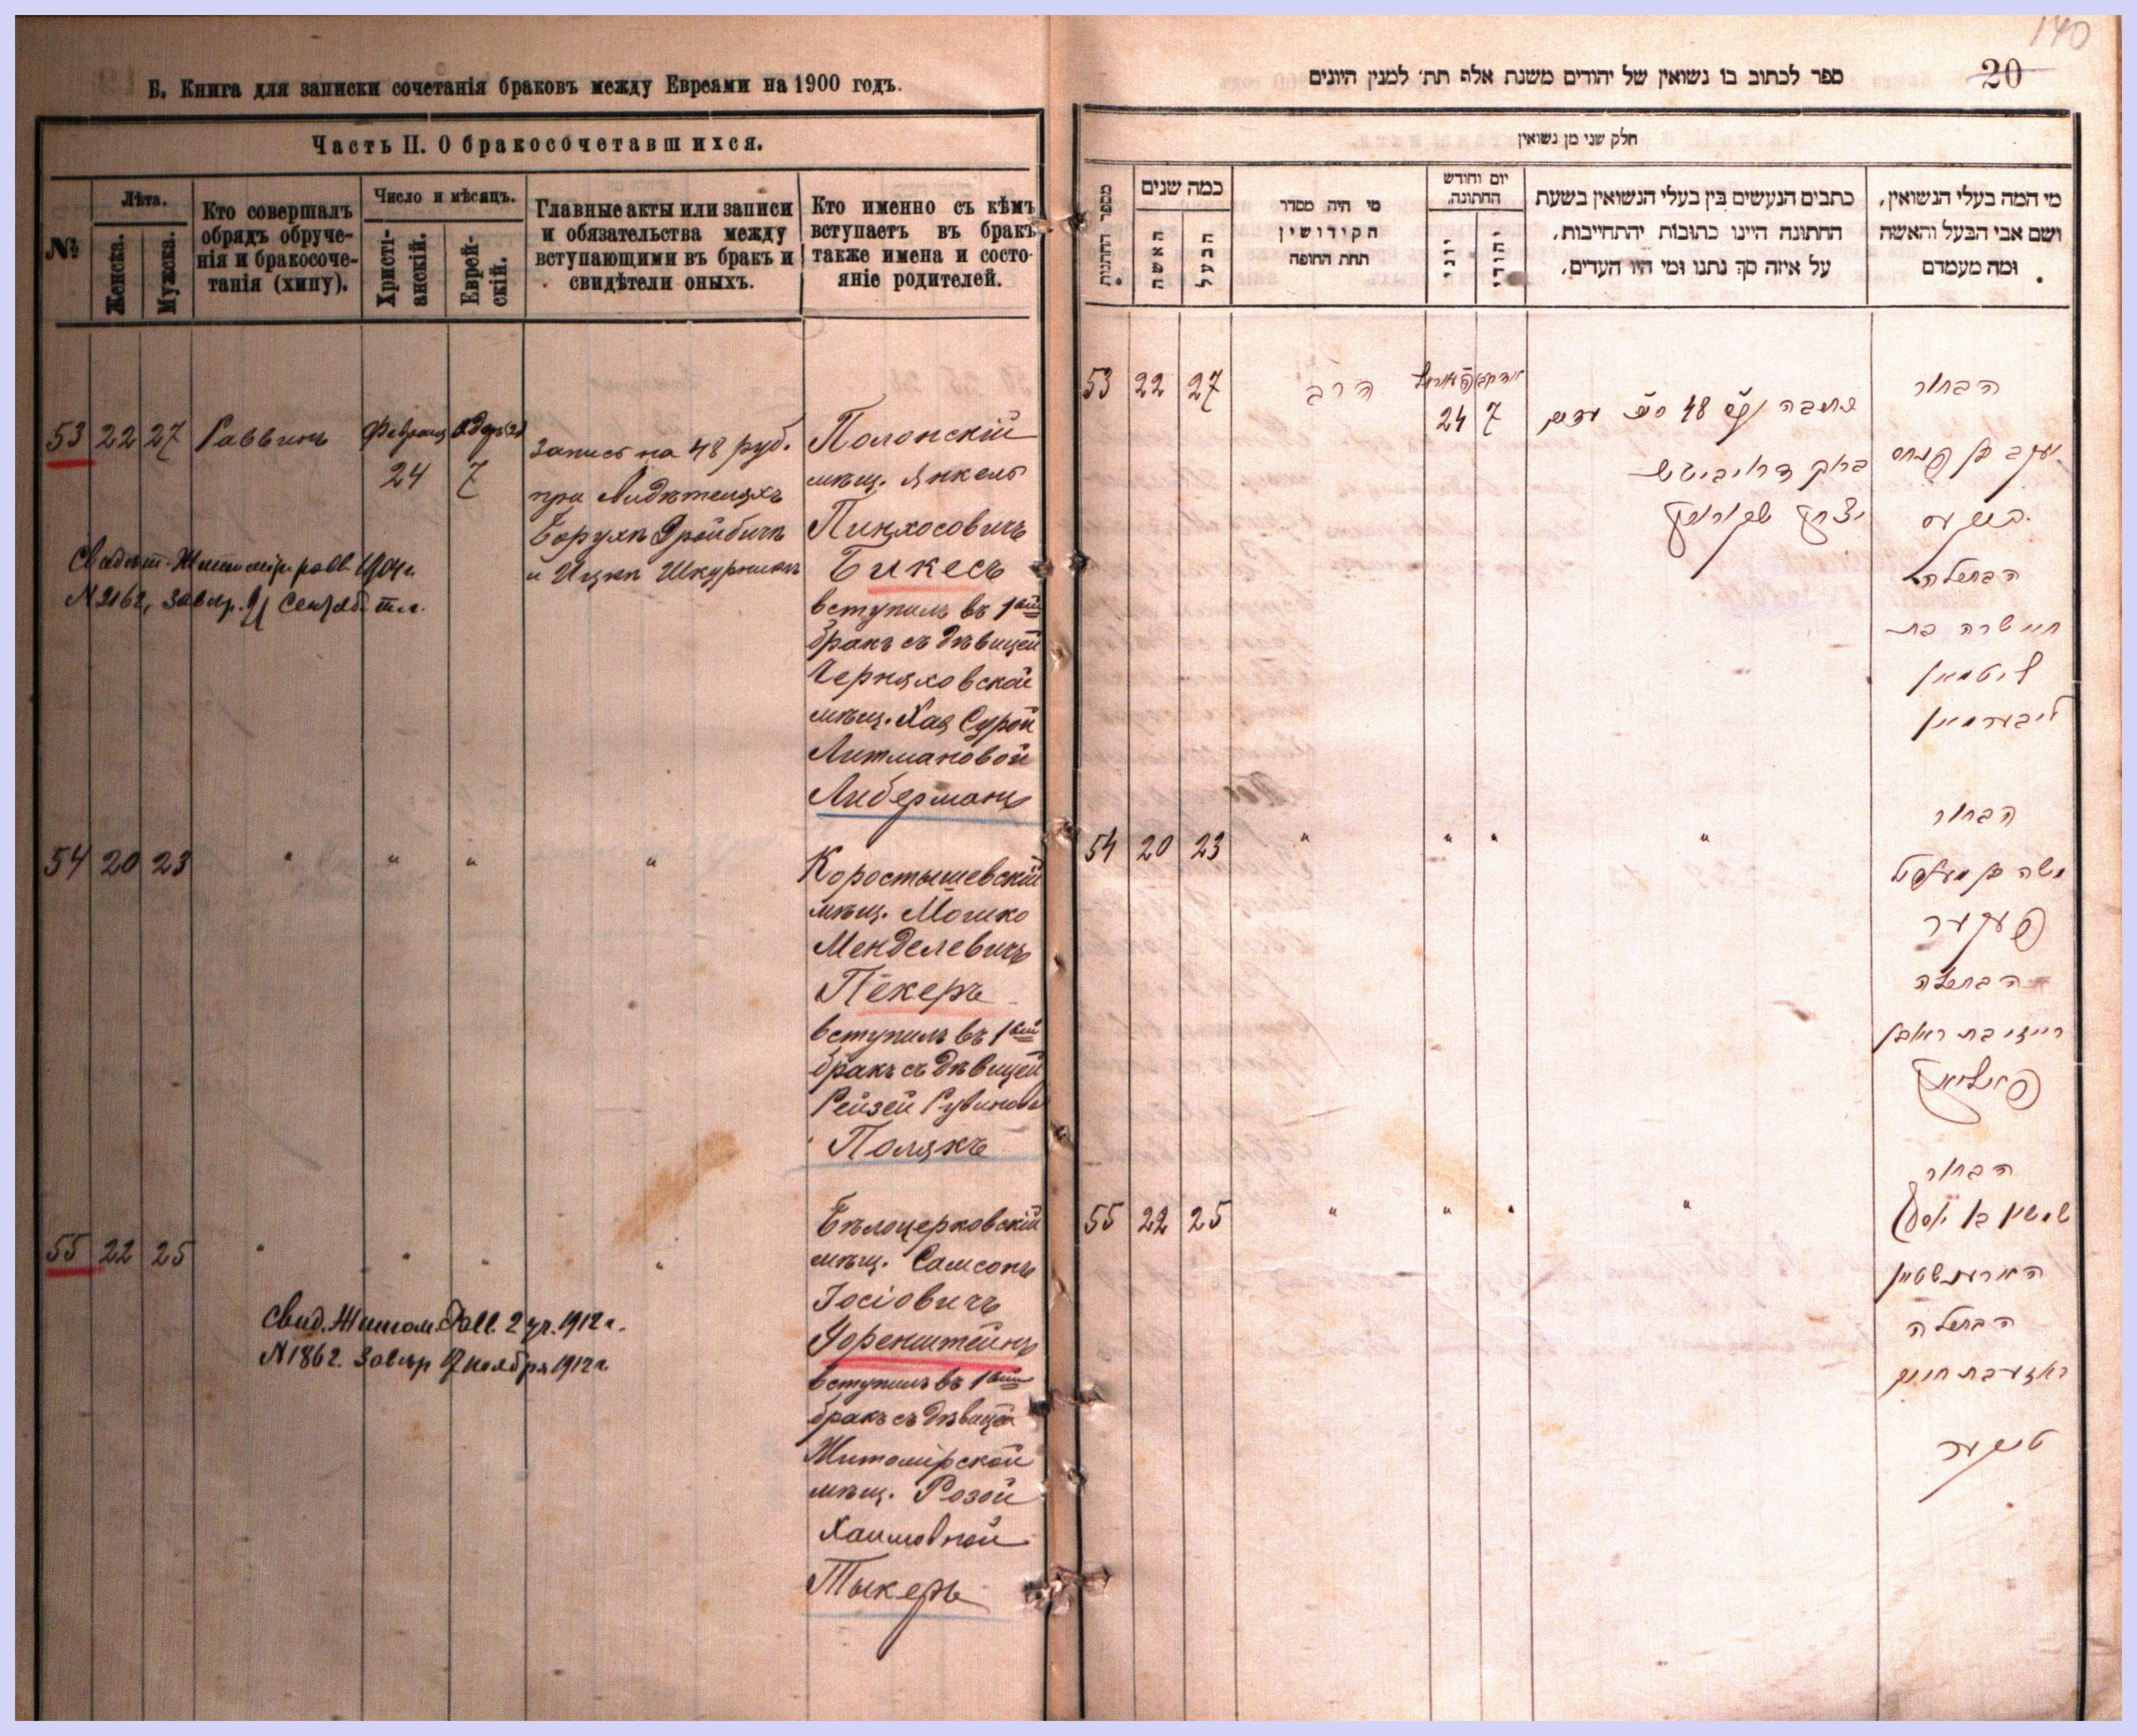 Б. Книга для записки сочетанія браковъ между Евреями на 1900 годъ.
Часть II. О бракосочетавшихся.
№
Лѣта.
Женска.
Мужска.
Кто совершалъ
обрядъ обруче-
нія и бракосоче-
танія (хипу).
Число и мѣсяцъ.
Христі-
анскій.
Еврей-
скій.
Главные акты или записи
и обязательства между
вступающими въ бракъ и
свидѣтели оныхъ.
Кто именно съ кѣмъ
вступаетъ въ бракъ
также имена и состо-
яніе родителей.
53 22 27 Раввинъ Февраля 24 Адеръ 7
Запись на 48 руб.
при Свидѣтеляхъ
Борухъ Дройбичъ
и Ицка Шкурникъ
Полонскій
мѣщ. Янкель
Пинхосовичъ
Бикесъ
вступилъ въ 1ый
бракъ съ дѣвицей
Черняховской
мѣщ. Хая Сурой
Литмановой
Либерманъ
Свидѣт. Житомір. равв. 1904г.
N 2162, Завѣр. Сентяб.
54 20 23 " " " "
Коростышевскій
мѣщ. Мошко
Менделевичъ
Пекеръ
вступилъ въ 1ый
бракъ съ дѣвицей
Рейзей Рувинова
Полякъ
55 22 25 " " " "
Бѣлоцерковскій
мѣщ. Самсонъ
Іосіовичъ
Горенштейнъ
вступилъ въ 1ый
бракъ съ дѣвицей
Житомірской
мѣщ. Розой
Хаимовной
Тыкеръ
Свид. Житом. Равв. 2 уч. 1912 г.
N 1862. Завѣр 17 ноября 1912 г.
140
20
ספר לכתוב בו נשואין של יהודים משנת אלף תת׳ למנין היונים
חלק שני מן נשואין
מספר החתנות
כמה שנים
האשה
הבעל
מי היה מסדר
הקידושין
תחת החופה
יום וחודש
החתונה.
יוני
יהודי
כתבים הנעשים בין בעלי הנשואין בשעת
החתונה היינו כתובות יהתחייבות,
על איזה סך נתנו ומי היו העדים,
מי המה בעלי הנשואין,
ושם אבי הבעל והאשה
ומה מעמדם
53 22 27 הרב 24 7
כתובה 48 עדים
ברוך דראיביטש
יצחק שקורניק
הבחור
יעקב בן פנחס
ביקעס
הבתולה
חיי שרה בת
ליטמאן
ליבערמאן
54 20 23 " " " "
הבחור
משה בן מענדיל
פעקער
הבתולה
רייזי בת ראובן
פאליאק
55 22 25 " " " "
הבחור
שמשון בן יוסף
הארענשטיין
הבתולה
ראזע בת חיים
טיקער